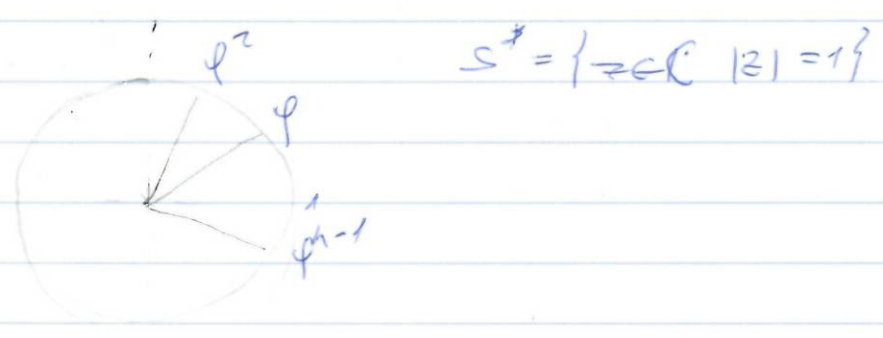 φ²
S* = { z ∈ ℂ |z| = 1 }
φ
1
φⁿ⁻¹